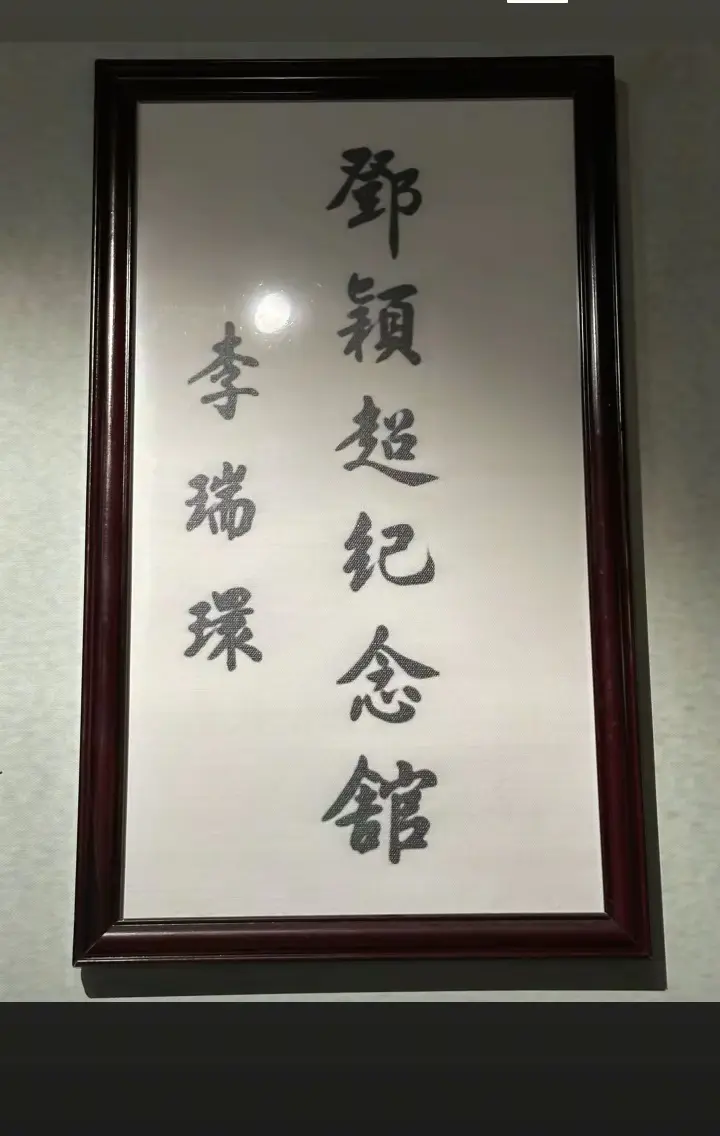 鄧穎超紀念舘
李瑞環